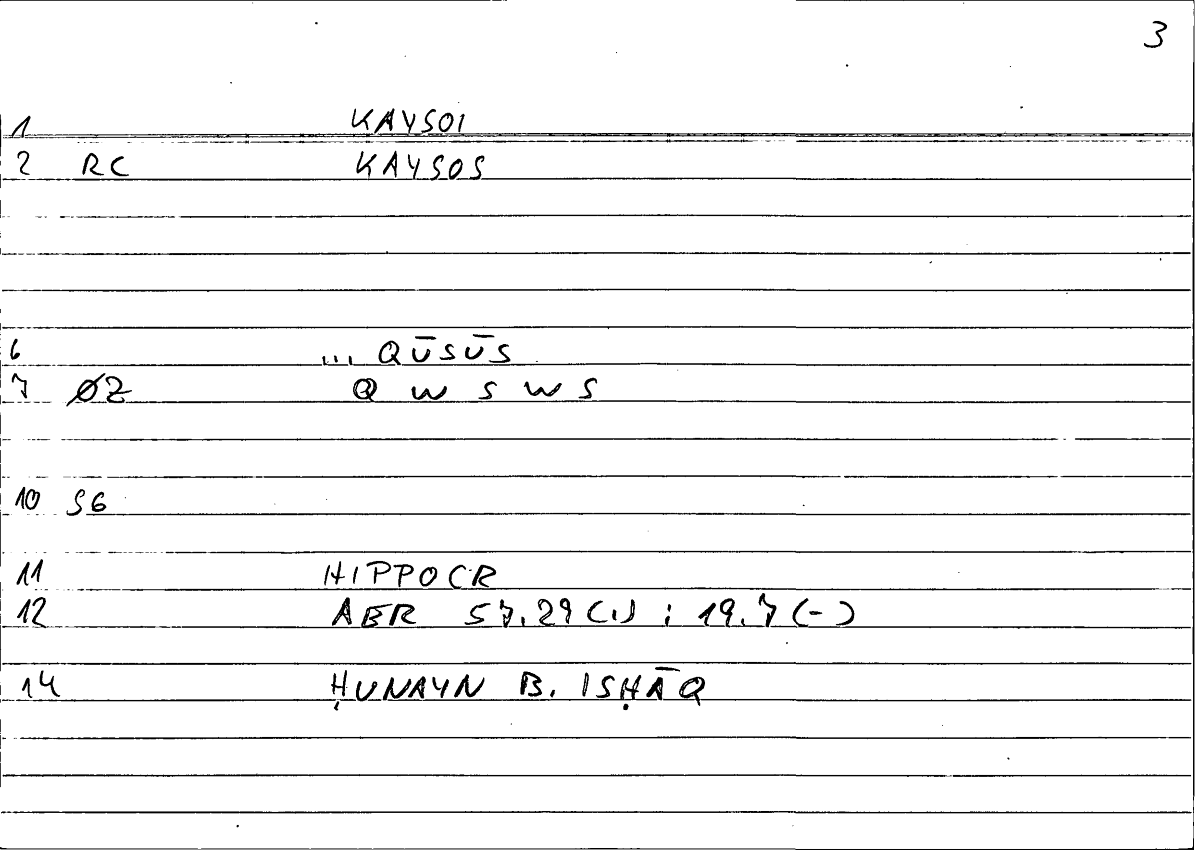 3
1 KAYSOI
2 RC KAYSOS
6 ... QŪSŪS
7 ØZ Q W S W S
10 SG
11 HIPPOCR
12 AER 57.29 (.) : 19.7 (-)
14 ḤUNAYN B. ISḤĀQ